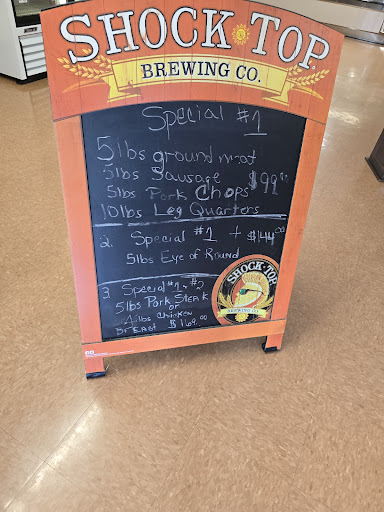 SHOCK TOP
BREWING CO.
Special #1
5lbs ground meat
5lbs Sausage
5lbs Pork Chops $99.00
10lbs Leg Quarters
2. Special #1 + $144.00
5lbs Eye of Round
3. Special #1 + #2
5lbs Pork Steak
or
4lbs Chicken
Breast $169.00
SHOCK TOP
BREWING CO.